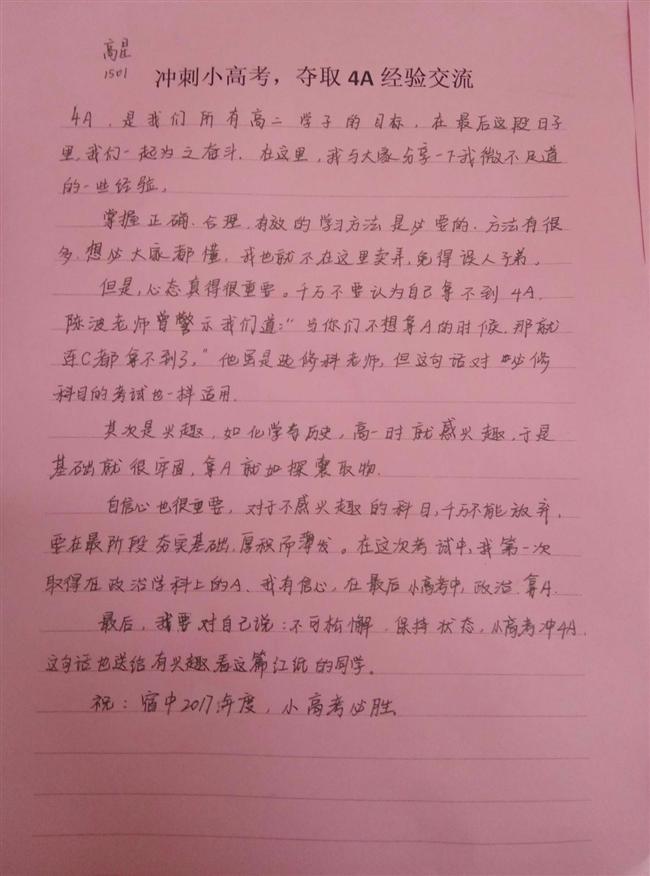 高星
1501
冲刺小高考，夺取 4A 经验交流
4A，是我们所有高二学子的目标，在最后这段日子
里，我们一起为之奋斗．在这里，我与大家分享一下我微不足道
的一些经验。
掌握正确、合理、有效的学习方法是必要的．方法有很
多，想必大家都懂，我也就不在这里卖弄，免得误人子弟。
但是，心态真得很重要。千万不要认为自己拿不到 4A．
陈波老师曾警示我们道：“当你们不想拿A的时候，那就
连C都拿不到了。”他虽是选修科老师，但这句话对必修
科目的考试也一样适用．
其次是兴趣，如化学与历史，高一时就感兴趣，于是
基础就很牢固，拿A就如探囊取物．
自信心也很重要，对于不感兴趣的科目，千万不能放弃．
要在最阶段夯实基础，厚积而薄发。在这次考试中，我第一次
取得在政治学科上的A．我有信心，在最后小高考中，政治拿A．
最后，我要对自己说：不可松懈，保持状态，小高考冲4A．
这句话也送给有兴趣看这篇红纸的同学。
祝：宿中2017年度，小高考必胜